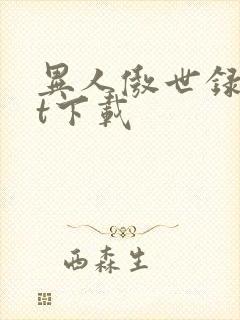 異人傲世録
t下載
西森生